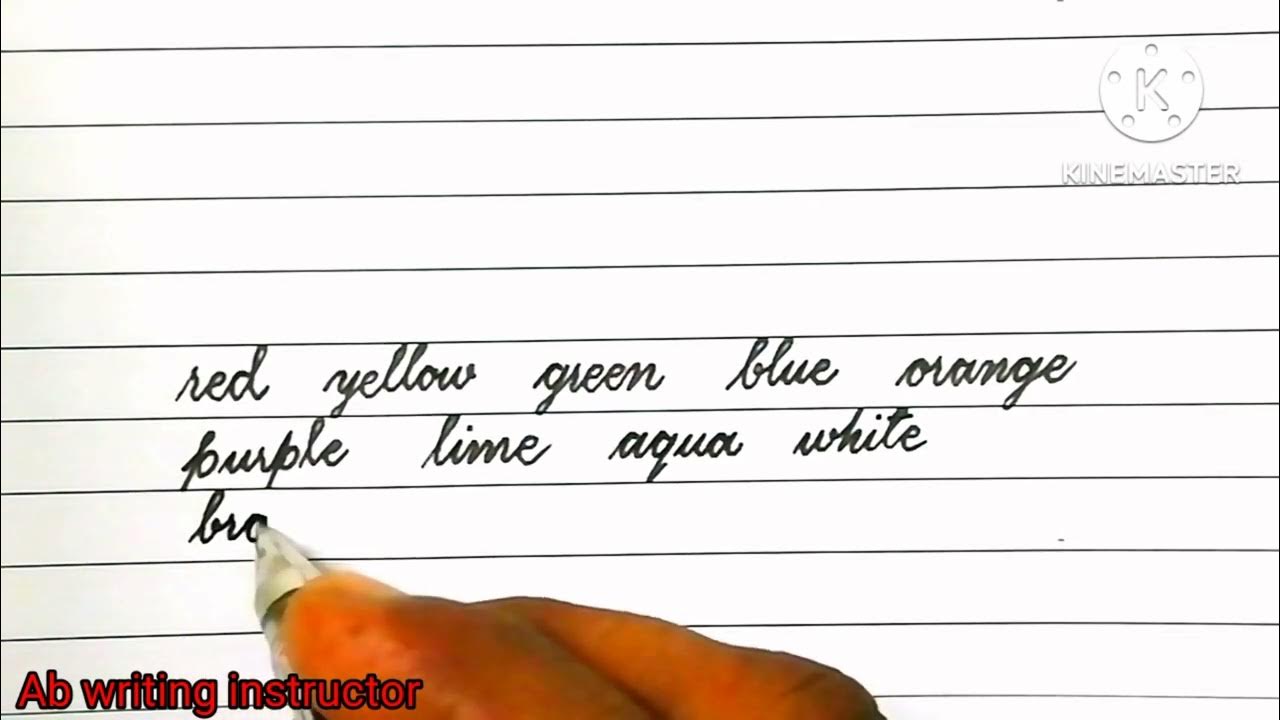 KINEMASTER
red yellow green blue orange
purple lime aqua white
bro
Ab writing instructor